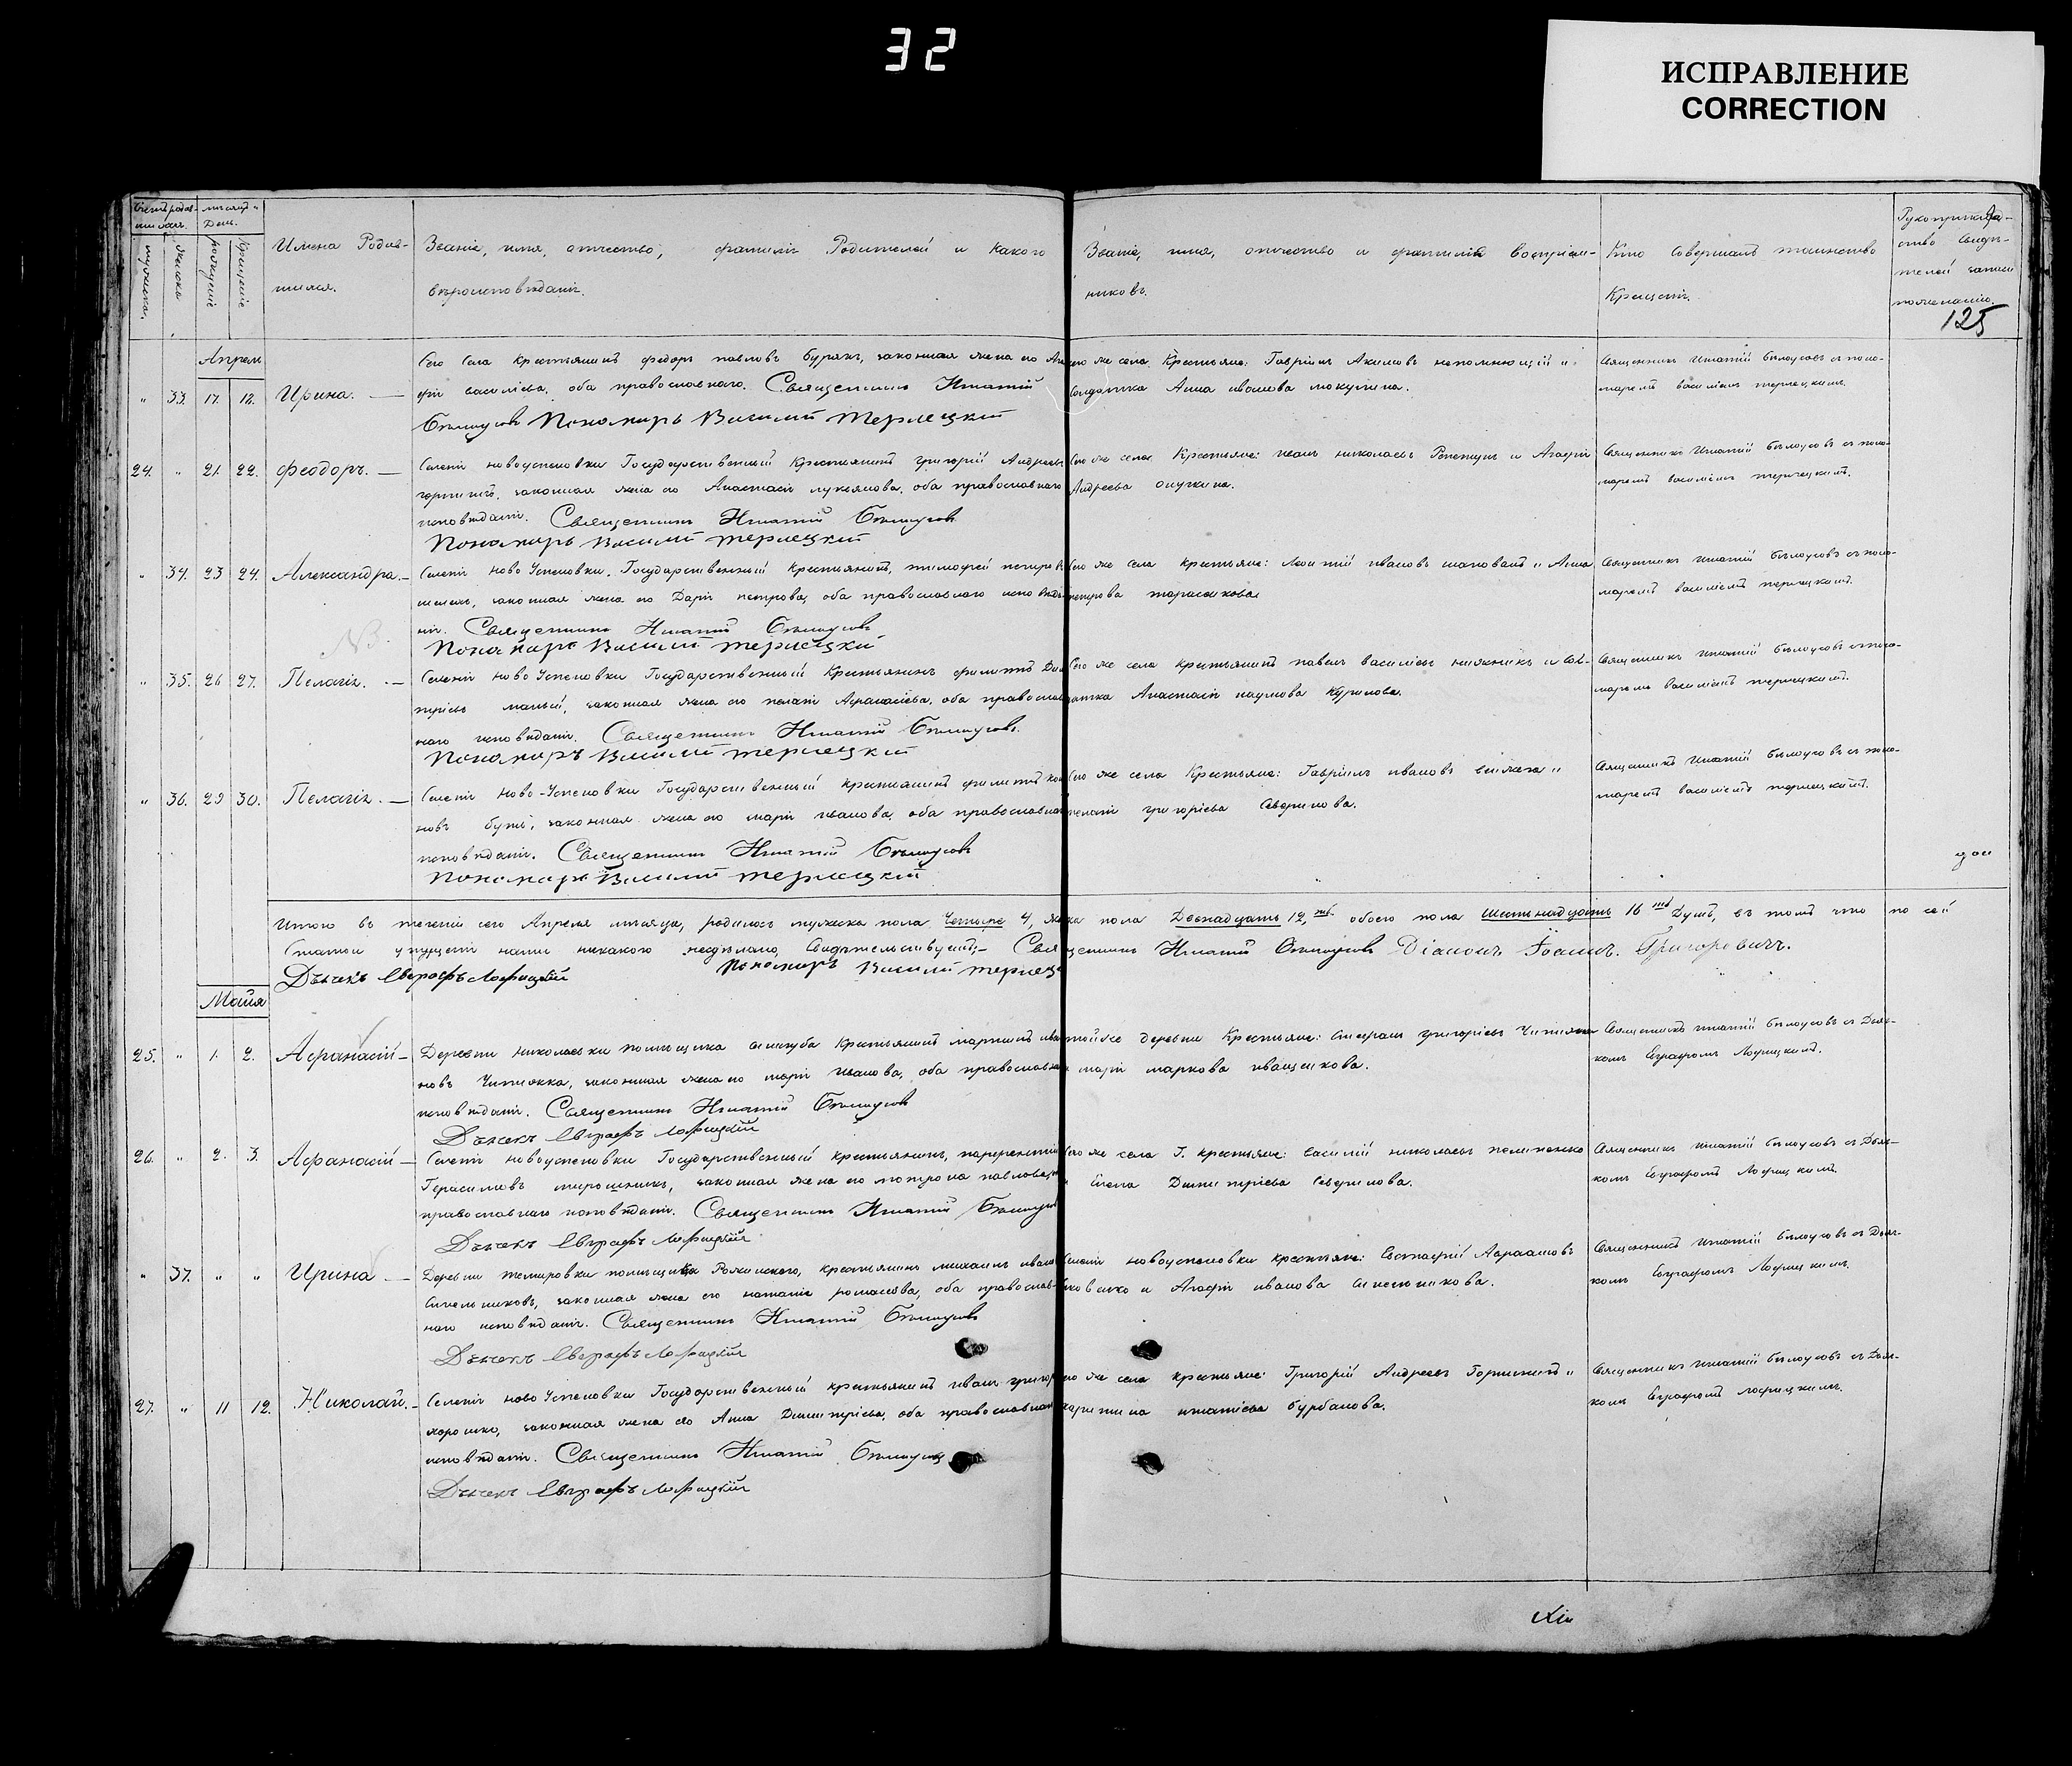 32
ИСПРАВЛЕНИЕ
CORRECTION
Счетъ родив-
шихся.
мѣсяцъ и
День.
мужеска.
женска
рожденіе
крещеніе
Имена Родив-
шихся.
Званіе, имя, отчество, фамиліи Родителей и какого
вѣроисповѣданія.
Званіе, имя, отчество и фамилія воспріем-
никовъ.
Кто совершалъ таинство
Крещенія.
Рукоприклад-
ство свидѣ-
телей записи
пожеланію.
125
Апреля
„ 33. 17. 18. Ирина. —
Сего Села крестьянинъ федоръ павловъ бурякъ, законная жена его
васильева, оба православнаго. Священникъ Игнатій
Бѣлоусовъ Пономарь Василій Терлецкій
сего же села Крестьяне: Гавріилъ Акимовъ непомнющій и
солдатка Анна иванова
Священникъ Игнатій бѣлоусовъ съ поно-
маремъ василіемъ терлецкимъ.
24. „ 21. 22. Феодоръ. —
Селенія новоуспеновки Государственный Крестьянинъ григорій Андреевъ
горпинъ, законная жена его Анастасія лукьянова, оба православнаго
исповѣданія. Священникъ Игнатій Бѣлоусовъ
Пономарь Василій Терлецкій
Сего же села Крестьяне: иванъ николаевъ Репетунъ и Агафія
Андреева
Священникъ Игнатій бѣлоусовъ съ поно-
маремъ василіемъ терлецкимъ.
„ 34. 23 24. Александра. —
Селенія Ново Успеновки, Государственный Крестьянинъ, тимофей петровъ
законная жена его Дарія петрова, оба православнаго исповѣда-
нія. Священникъ Игнатій Бѣлоусовъ
Пономарь Василій Терлецкій
Сего же села крестьяне: Леонтій ивановъ шаповалъ и Анна
петрова тарасенкова
Священникъ Игнатій бѣлоусовъ съ поно-
маремъ василіемъ терлецкимъ.
№3.
„ 35. 26 27. Пелагія. —
Селенія Ново Успеновки Государственный Крестьянинъ филиппъ Дми-
тріевъ малый, законная жена его пелагія Афанасіева, оба православ-
наго исповѣданія. Священникъ Игнатій Бѣлоусовъ.
Пономарь Василій Терлецкій
Сего же села крестьянинъ павелъ василіевъ нижникъ и сол-
датка Анастасія наумова Курилова.
Священникъ Игнатій бѣлоусовъ съ поно-
маремъ василіемъ терлецкимъ.
„ 36. 29 30. Пелагія. —
Селенія Ново-Успеновки Государственный крестьянинъ филиппъ
новъ бутъ, законная жена его марія иванова, оба православнаго
исповѣданія. Священникъ Игнатій Бѣлоусовъ
Пономарь Василій Терлецкій
Сего же села Крестьяне: Гавріилъ ивановъ и
пелагія григорьева Северинова.
Священникъ Игнатій бѣлоусовъ съ поно-
маремъ василіемъ терлецкимъ.
Итого въ теченіи сего Апреля мѣсяца, родилось мужеска пола Четыре 4, женска пола Двенадцать 12, обоего пола Шестьнадцать 16 Душъ, въ томъ что по сей
Статьи упущенія нами никакого несдѣлано, Свидѣтельствуемъ:— Священникъ Игнатій Бѣлоусовъ Діаконъ Іоаннъ Григоревичъ.
Дьячекъ Евграфъ Лофицкій Пономарь Василій терлецкій
Майя
25. „ 1. 2. Афанасій —
Деревни николаевки помѣщика крестьянинъ мартинъ ива-
новъ законная жена его марія иванова, оба православнаго
исповѣданія. Священникъ Игнатій Бѣлоусовъ
Дьячекъ Евграфъ Лофицкій
тойже деревни Крестьяне: Стефанъ григорьевъ
марія маркова иващенкова.
Священникъ Игнатій бѣлоусовъ съ Дьяч-
комъ Евграфомъ Лофицкимъ.
26. „ 2. 3. Афанасій —
Селенія новоуспеновки Государственный крестьянинъ,
Герасимовъ мирошникъ, законная жена его мотрона павлова,
православнаго исповѣданія. Священникъ Игнатій Бѣлоусовъ
Дьячекъ Евграфъ Лофицкій
Сего же села Г. крестьяне: василій николаевъ
Елена Дмитріева Северинова.
Священникъ Игнатій бѣлоусовъ съ Дьяч-
комъ Евграфомъ Лофицкимъ.
„ 37. „ „ Ирина —
Деревни темировки помѣщика крестьянинъ михаилъ иванов
Синельниковъ, законная жена его наталія романова, оба православ-
наго исповѣданія. Священникъ Игнатій Бѣлоусовъ
Дьячекъ Евграфъ Лофицкій
Селенія новоуспеновки крестьяне: Евстафій Авраамовъ
и Агафія иванова Синельникова.
Священникъ Игнатій бѣлоусовъ съ Дьяч-
комъ Евграфомъ Лофицкимъ.
27. „ 11 12. Николай. —
Селенія ново Успеновки Государственный крестьянинъ иванъ григорьевъ
хорошко, законная жена его Анна Дмитріева, оба православнаго
исповѣданія. Священникъ Игнатій Бѣлоусовъ
Дьячекъ Евграфъ Лофицкій
сего же села крестьяне: Григорій Андреевъ Горпинъ и
харитина игнатіева бурбанова.
Священникъ Игнатій бѣлоусовъ съ Дьяч-
комъ Евграфомъ лофицкимъ.